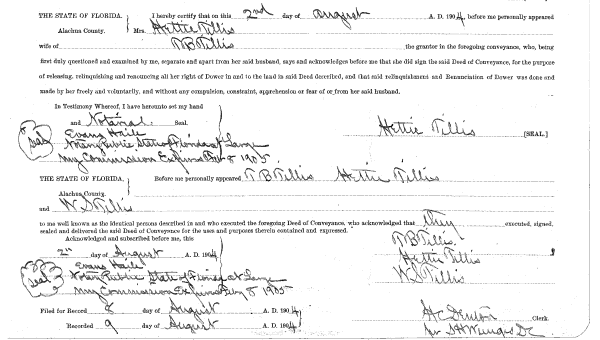 THE STATE OF FLORIDA, I hereby certify that on this 2nd day of August A. D. 1904, before me personally appeared
Alachua County. Mrs. Hettie Tillis
wife of T B Tillis the grantor in the foregoing conveyance, who, being
first duly questioned and examined by me, separate and apart from her said husband, says and acknowledges before me that she did sign the said Deed of Conveyance, for the purpose
of releasing, relinquishing and renouncing all her right of Dower in and to the land in said Deed described, and that said relinquishment and Renunciation of Dower was done and
made by her freely and voluntarily, and without any compulsion, constraint, apprehension or fear of or from her said husband.
In Testimony Whereof, I have hereunto set my hand
and Notarial Seal.
Seal Evans Haile Hettie Tillis [SEAL.]
Notary Public State of Florida at Large
My Commission Expires 8 1905
THE STATE OF FLORIDA, Before me personally appeared T B Tillis Hettie Tillis
Alachua County.
and W S Tillis
to me well known as the identical persons described in and who executed the foregoing Deed of Conveyance, who acknowledged that they executed, signed,
sealed and delivered the said Deed of Conveyance for the uses and purposes therein contained and expressed.
Acknowledged and subscribed before me, this T B Tillis
2nd day of August A. D. 1904 Hettie Tillis
Evans Haile W S Tillis
Seal Notary Public State of Florida at Large
My Commission Expires Feby 8 1905
Filed for Record 8 day of August A. D. 1904 H C Denton Clerk.
Recorded 9 day of August A. D. 1904 per D C